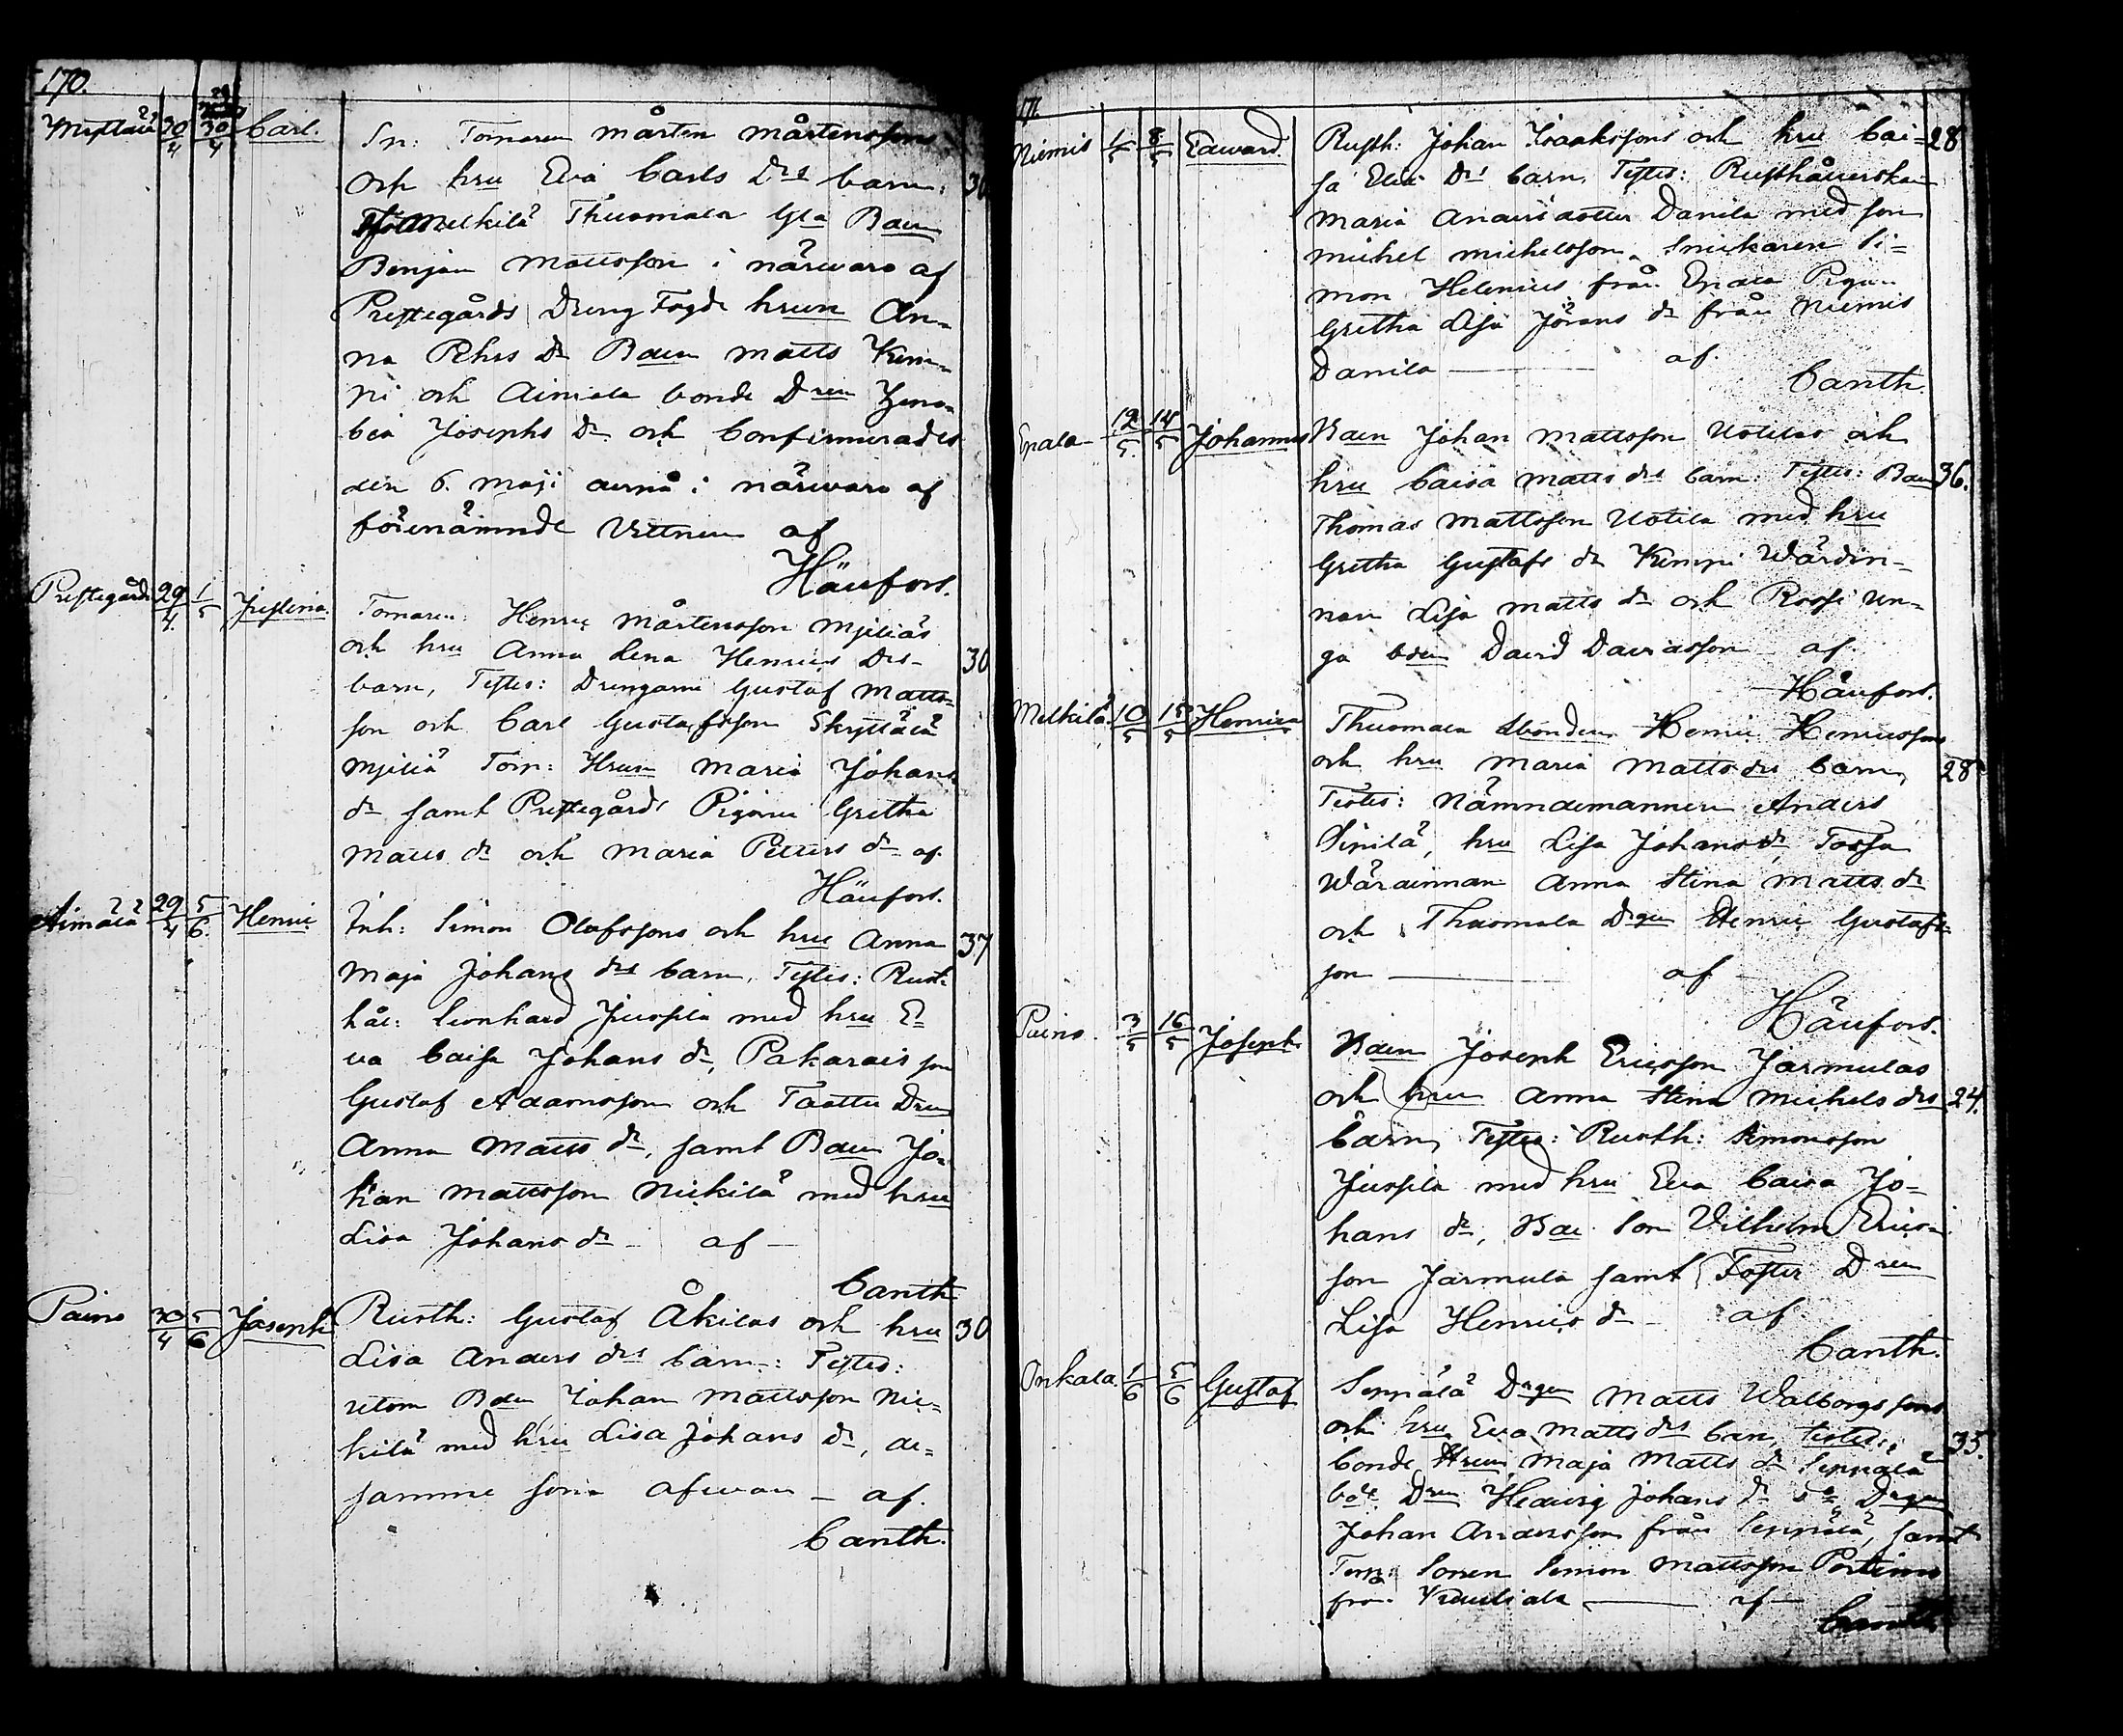 170.
30/4 30/4 Carl. Sn: Tornaren Mårten Mårtenssons
och hru Eva Carls Drs barn: 30
Melkilä Thuomala Gla Baen
Benjam Mattsson i närwaro af
Prestegårds Dreng Fogde hrun An-
na Rhrs Dr Baen Matts Kem-
pi och Aimala bonde Dren Zeno-
bia Josephs Dr och Confirmerades
den 6. Maji i närwaro af
förenämnde Vittnen af
Häufors.
Prestegård 29/4 1/5 Justina. Tornaren: Henric Mårtensson Mjiliäs
och hru Anna Lena Henrics Drs 30
barn, Testes: Drengarne Gustaf Matts-
son och Carl Gustafsson Skyttälä
Mjiliä Torp: Hrun Maria Johans
dr samt Prestegårds Pigorne Gretha
Matts dr och Maria Petters dr af
Häufors.
Aimälä 29/4 5/6 Henric Inh: Simon Olofssons och hru Anna 37
Maja Johans drs barn. Testes: Rust-
hål: Leonhard Juspila med hru E-
va Caisa Johans dr, Pakarais son
Gustaf Adamsson och Taattu Dren
Anna Matts dr, samt Baen Jo-
han Mattsson Nickilä med hru
Lisa Johans dr - af -
Canth.
Paino 30/4 5/6 Joseph Rusth: Gustaf Åkilas och hru 30
Lisa Anders drs barn: Testes:
utom Baen Johan Mattsson Nic-
kilä med hru Lisa Johans dr, de-
samme som ofwan - af.
Canth.
171.
Niemis 1/5 8/5 Edward. Rusth: Johan Isaakssons och hru Cai- 28
sa Elia Drs barn, Testes: Rusthållerskan
Maria Andersdotter Danila med son
Michel Michelsson, Snickaren Si-
mon Helenius från Epala Pigan
Gretha Lisa Jörans dr från Niemis
Danila - af.
Canth.
Epala 12/5 14/5 Johannes Baen Johan Mattsson Uotilas och
hru Caisa Matts drs barn. Testes: Baen 36.
Thomas Mattsson Uotila med hru
Gretha Gustafs dr Kempi Wärdin-
nan Lisa Matts dr och Rossi un-
ga bden David Davidsson - af.
Häufors.
Melkilä 10/5 15/5 Henrica Thuomala Henric Henricssons
och hru Maria Matts drs barn, 28
Testes: Nämndemannen Anders
Sipilä, hru Lisa Johans dr, Tossa
Wärdinnan Anna Stina Matts dr
och Thuomala Drgen Henric Gustafs-
son - af
Häufors.
Paino 3/5 16/5 Joseph Baen Joseph Ericsson Jarmulas
och hru Anna Stina Michels drs 24.
barn, Testes: Rusth: Simonsson
Juspila med hru Eva Caisa Jo-
hans dr, Bde Son Vilhelm Erics-
son Jarmula samt Foster Dren
Lisa Henrics dr - af
Canth.
Onkala. 1/6 5/6 Gustaf Seppälä Drgen Matts Walborgssons
och hru Eva Matts drs barn, testes: 35.
bonde Hrun Maja Matts dr Seppälä
bde Dren Hedwig Johans dr Drgen
Johan Andersson från Seppälä, samt
Torp: Sonen Simon Mattsson Portimo
från - af -
Canth.